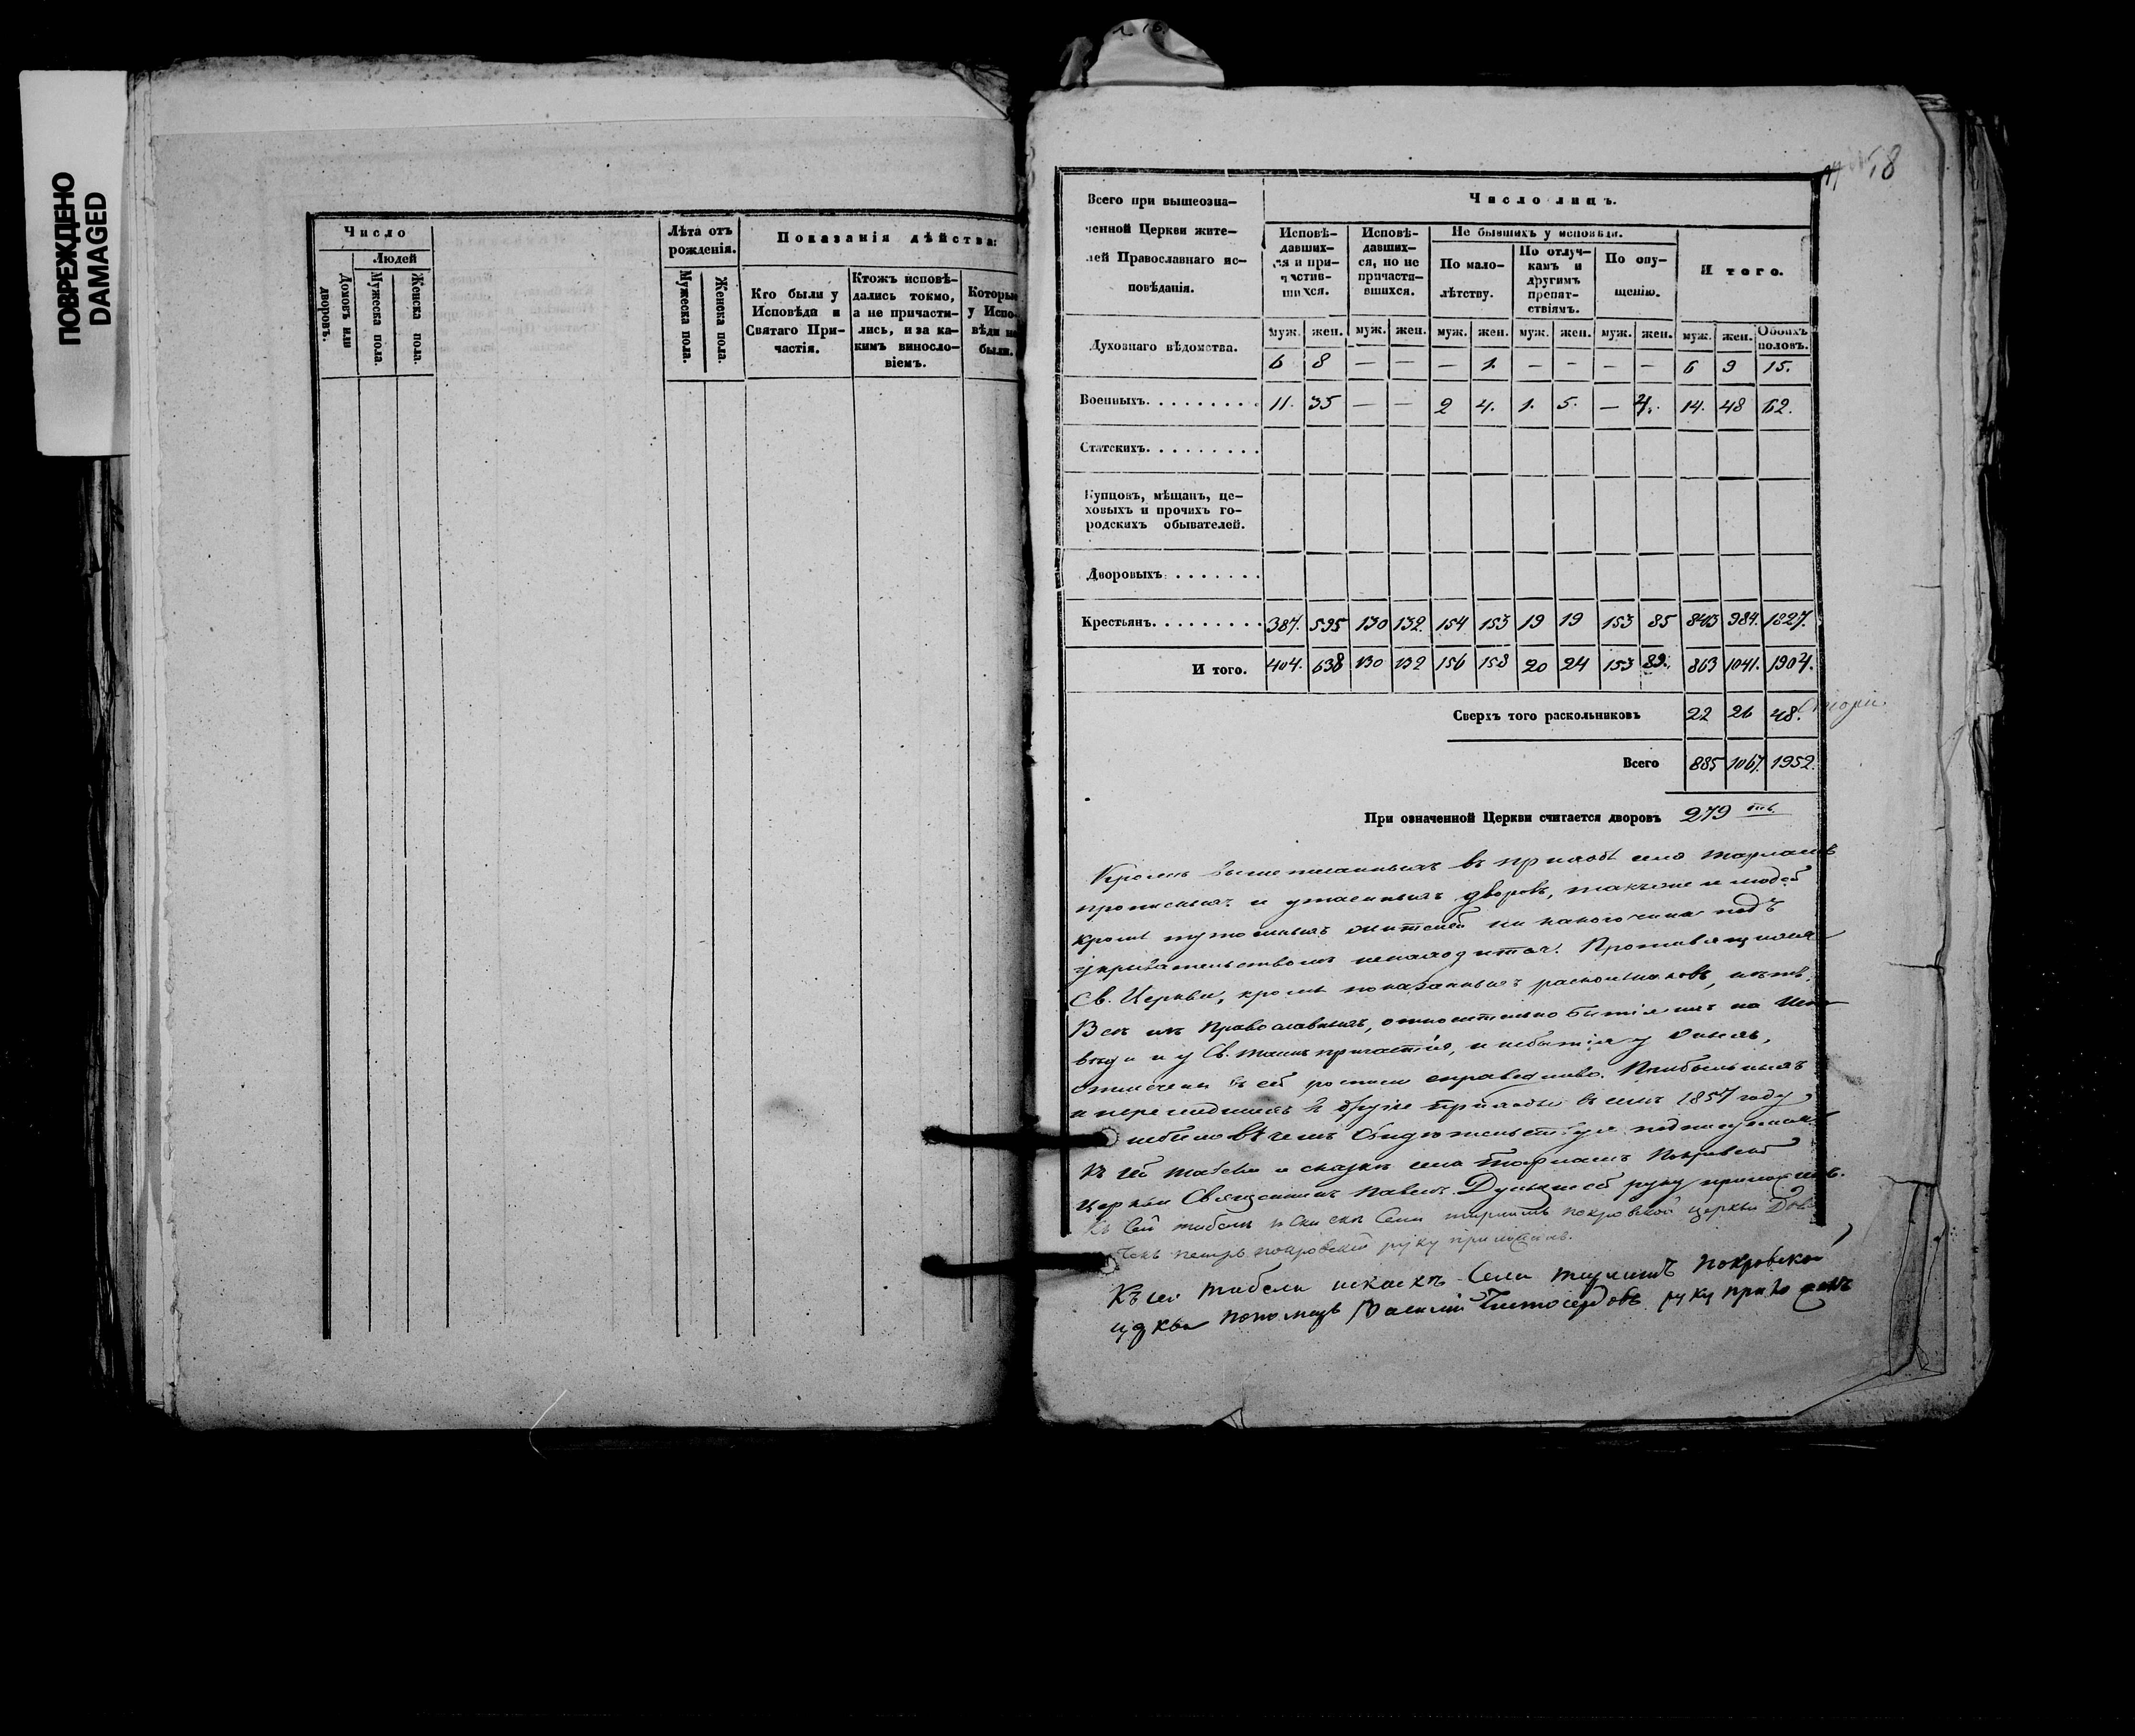 ПОВРЕЖДЕНО
DAMAGED
Число
Людей
Домовъ или дворовъ.
Мужеска пола
Женска пола.
Лѣта отъ рожденія.
Мужеска пола.
Женска пола.
Показанія дѣйства:
Кто были у Исповѣди и Святаго Причастія.
Ктожъ исповѣдались токмо, а не причастились, и за какимъ винословіемъ.
Которые у Исповѣди не были.
58
Всего при вышеозначенной Церкви жителей Православнаго исповѣданія.
Число лицъ.
Исповѣдавшихся и причастившихся.
Исповѣдавшихся, но не причастившихся.
Не бывшихъ у исповѣди.
По малолѣтству.
По отлучкамъ и другимъ препятствіямъ.
По опущенію.
И того.
муж. жен. муж. жен. муж. жен. муж. жен. муж. жен. муж. жен. Обоихъ половъ.
Духовнаго вѣдомства. 6 8 — — — 1. — — — — 6 9 15.
Военныхъ. 11. 35 — — 2 4. 1. 5. — 4. 14. 48 62.
Статскихъ.
Купцовъ, мѣщанъ, цеховыхъ и прочихъ городскихъ обывателей.
Дворовыхъ
Крестьянъ. 387. 595 130 132. 154 153 19 19 153 85 843 984. 1827.
И того. 404. 638 130 132 156 158 20 24 153 89. 863 1041. 1904.
Сверхъ того раскольниковъ 22 26 48.
Всего 885 1067. 1952.
При означенной Церкви считается дворовъ 279
Кромѣ вышеписанныхъ въ приходѣ села
прописныхъ и утаенныхъ дворовъ, такъже и людей
кромѣ жителей ни какого чина подъ
укрывательствомъ ненаходится. Противящихся
Св. Церкви, кромѣ показанныхъ раскольниковъ, нѣтъ.
Всѣ изъ Православныхъ, относительно бытія ихъ на Испо-
вѣди и у Св. Таинъ причастія, и небытія у оныхъ,
отмечены въ сей росписи справедливо. Прибывшихъ
и перешедшихъ въ другіе приходы въ семъ 1857 году
небыло въ чемъ свидѣтельствуя подписуемся.
Къ сей табели и сказкѣ села Покровской
церкви Священникъ Павелъ руку приложилъ.
Къ сей табели и сказкѣ села покровской церкви Дья-
чекъ петръ покровскій руку приложилъ.
Къ сей табели и сказкѣ села покровской
церкви пономарь Василій Чистосердовъ руку приложилъ